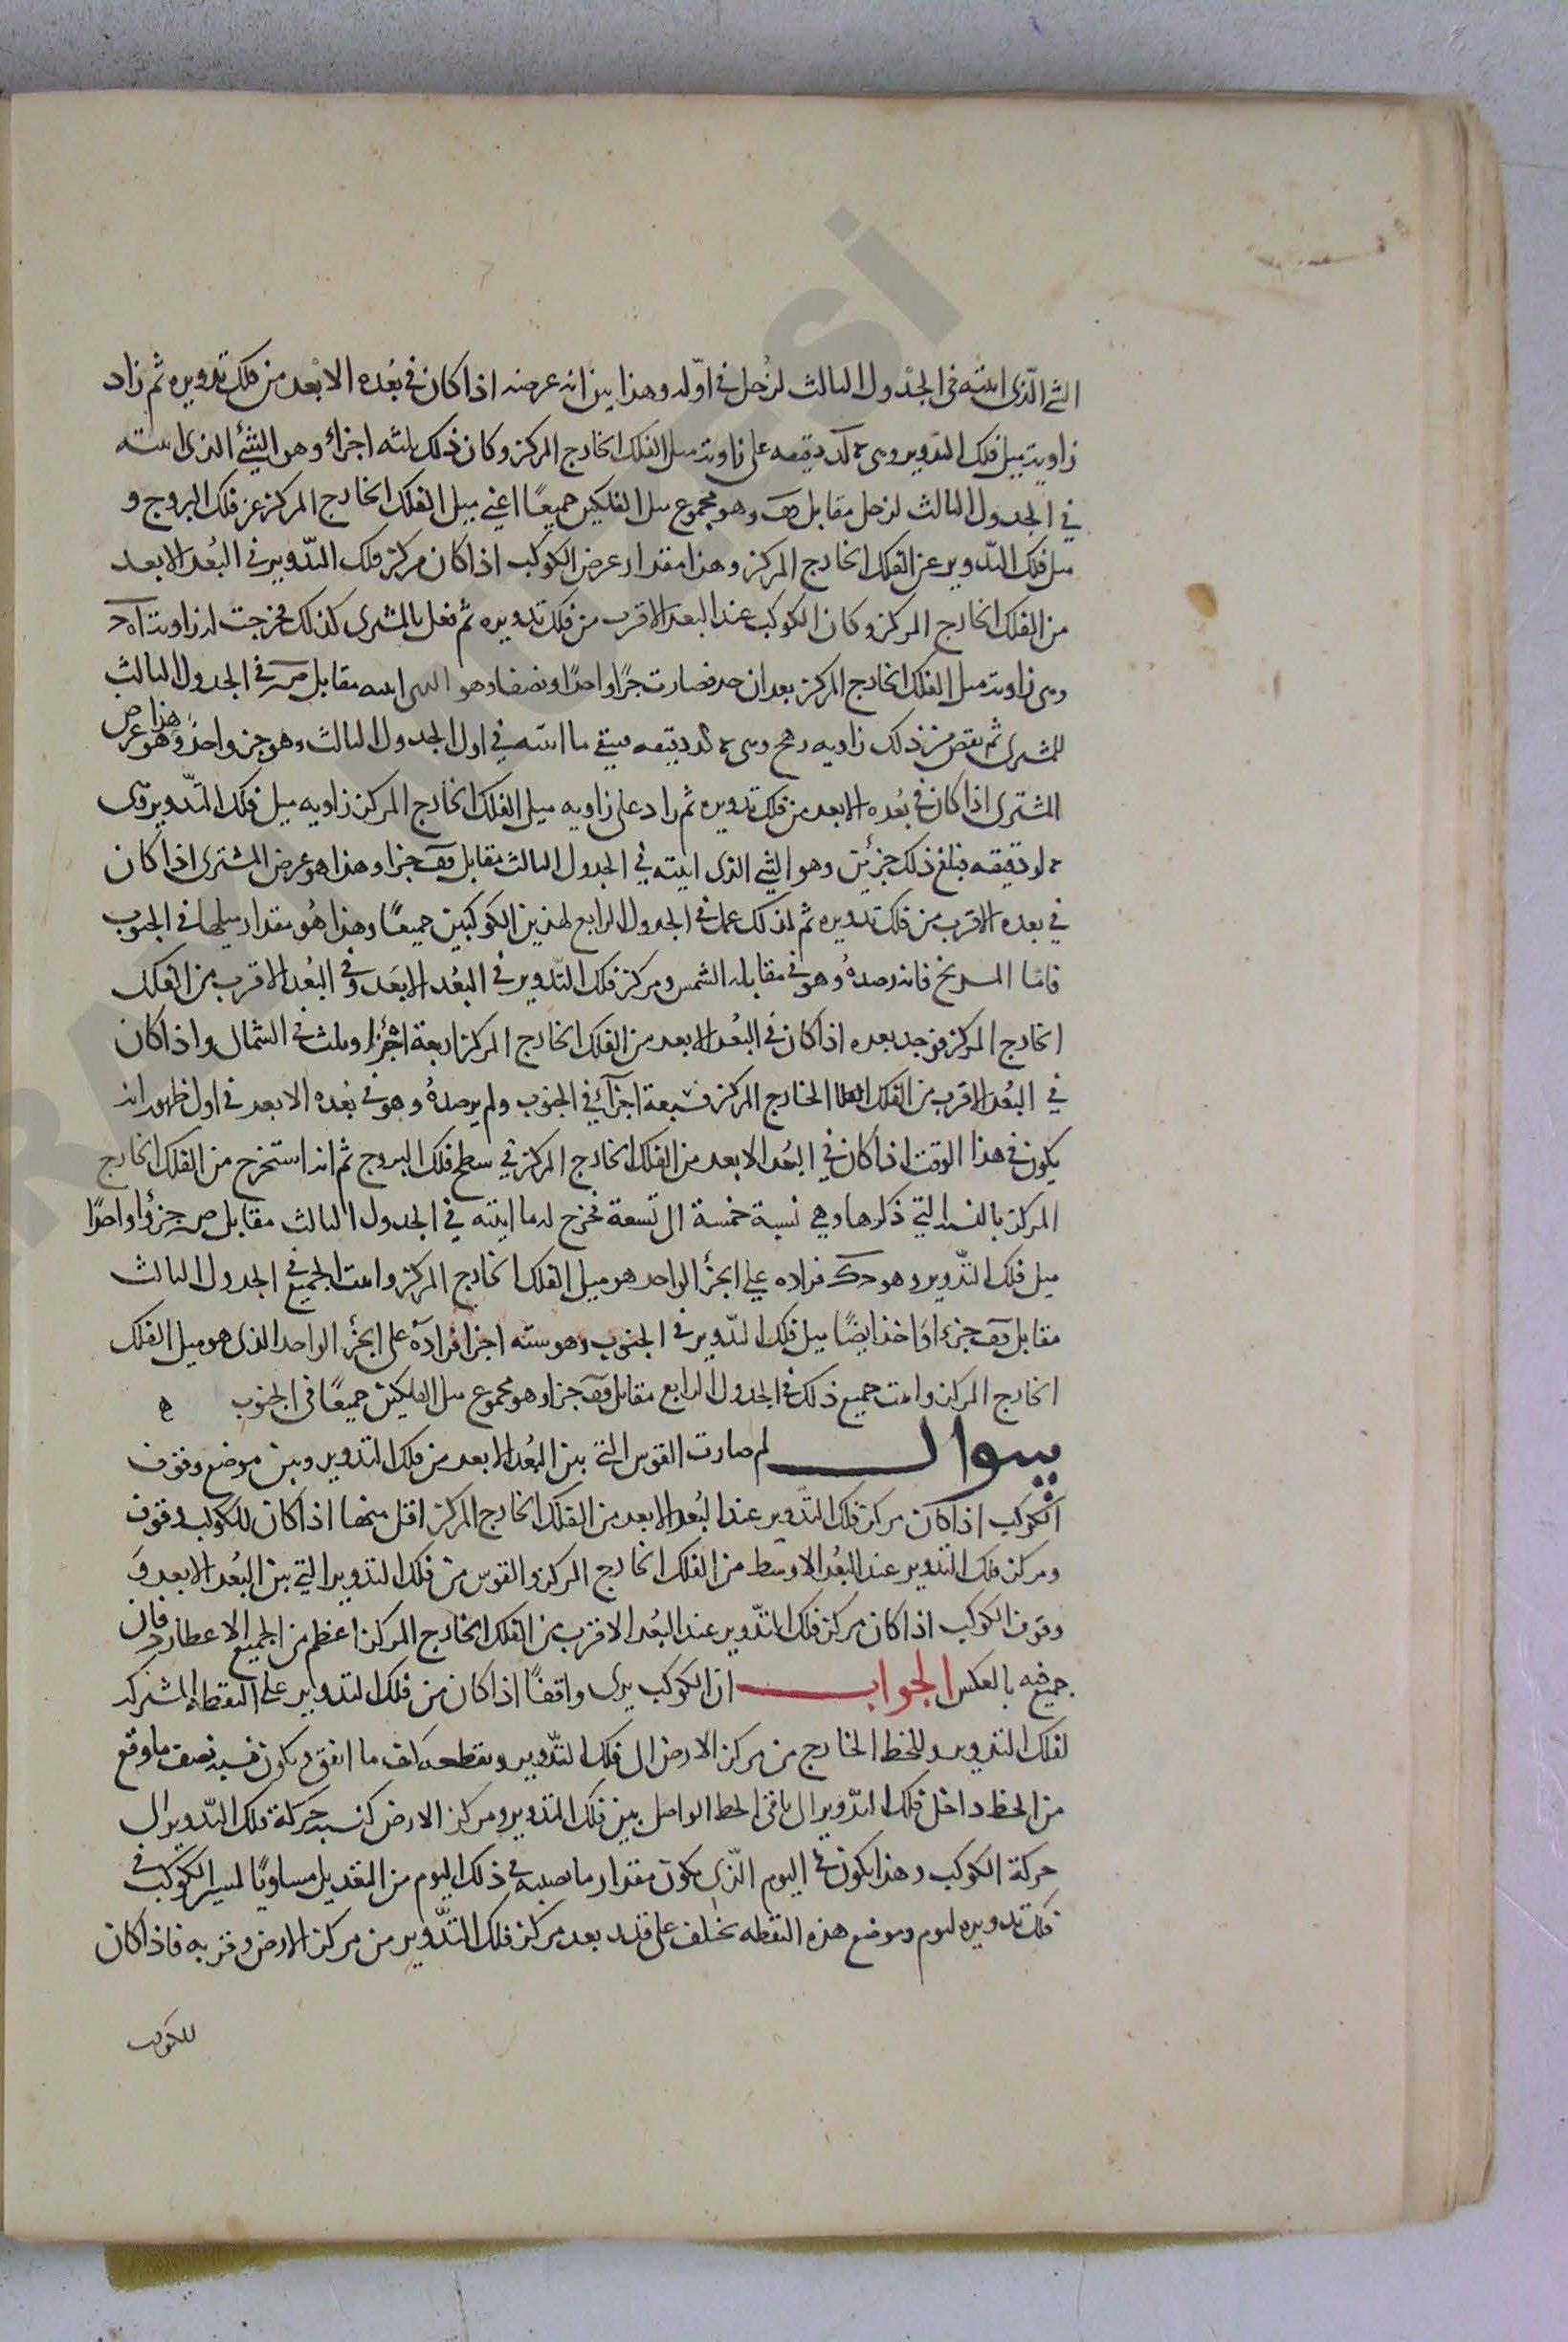 الشئ الّذى اثبته فى الجدول الثالث لزحل فى اوّله وهذا بين انه عرضه اذا كان فى بُعده الابعد من فلك تدويره ثم زاد
زاوية ميل فلك التدوير وهى دقيقه على زاوية ميل الفلك الخارج المركز وكان ذلك ثلثه اجزاء وهو الشئ الذى اثبته
فى الجدول الثالث لزحل مقابل وهو مجموع ميل الفلكين جميعًا اعنى ميل الفلك الخارج المركز عن فلك البروج و
ميل فلك التّدوير عن الفلك الخارج المركز وهذا مقدار عرض الكوكب اذا كان مركز فلك التّدوير فى البُعد الابعد
من الفلك الخارج المركز وكان الكوكب عند البعد الاقرب من فلك تدويره ثم فعل بالمشترى كذلك فخرجت له زاوية
وهى زاوية ميل الفلك الخارج المركز بعد ان فصارت جزًا واحدًا ونصفا وهو الذى اثبته مقابل فى الجدول الثالث
للمشترى ثم نقص من ذلك زاويه وهى دقيقه فبقى ما اثبته فى اول الجدول الثالث وهو جزو واحد وهذا هو عرض
المشترى اذا كان فى بُعده الابعد من فلك تدويره ثم زاد على زاويه ميل الفلك الخارج المركز زاويه ميل فلك التّدوير وهى
دقيقه فبلغ ذلك جزئين وهو الشئ الذى اثبته فى الجدول الثالث مقابل قف جزا وهذا هو عرض المشترى اذا كان
فى بعده الاقرب من فلك تدويره ثم كذلك عمل فى الجدول الرابع لهذين الكوكبين جميعًا وهذا هُو مقدار ميلهما فى الجنوب
فامّا المريخ فانه رصدهُ وهو فى مقابلة الشمس ومركز فلك التّدوير فى البُعد الابعَد وفى البُعد الاقرب من الفلك
الخارج المركز فوجد بعده اذا كان فى البُعد الابعد من الفلك الخارج المركز اربعة اجزاء وثلث فى الشمال واذا كان
فى البُعد الاقرب من الفلك الخارج المركز فسبعة اجزآء فى الجنوب ولم يرصدهُ وهو فى بُعده الابعد فى اول ظهوره انه
يكون فى هذا الوقت اذا كان فى البُعد الابعد من الفلك الخارج المركز فى سطح فلك البروج ثم انه استخرج من الفلك الخارج
المركز بالنسبة التى ذكرها وهى نسبة خمسة الى تسعة فخرج له ما اثبته فى الجدول الثالث مقابل جزوًا واحدًا
ميل فلك التّدوير وهو فزاده على الجزء الواحد هو ميل الفلك الخارج المركز واثبت الجميع فى الجدول الثالث
مقابل قف جزءا وَاخذ ايضًا ميل فلك التّدوير فى الجنوب وهو سته اجزا فزادهَ على الجزء الواحد الذى هو ميل الفلك
الخارج المركز واثبت جميع ذلك فى الجدول الرابع مقابل قف جزا وهو مجموع ميل الفلكين جميعًا فى الجنوب ه
سوال لم صارت القوس التى بين البُعد الابعد من فلك التدوير وبين موضع وقوف
الكوكب اذا كان مركز فلك التّدوير عند البُعد الابعد من الفلك الخارج المركز اقل منها اذا كان للكوكب وقوف
ومركز فلك التدوير عند البُعد الاوسط من الفلك الخارج المركز والقوس من فلك التدوير التى بين البُعد الابعد وَ
وقوف الكوكب اذا كان مركز فلك التّدوير عند البُعد الاقرب من الفلك الخارج المركز اعظم من الجميع الا عطارد فان
جميع فيه بالعكس الجواب ان الكوكب يرى واقفًا اذا كان من فلك التدوير على النقطه المشتركه
لفلك التدوير وللخط الخارج من مركز الارض الى فلك التّدوير ويقطعه كيف ما اتفق ويكون نسبه نصف ما وقع
من الخط داخل فلك التّدوير الى باقى الخط الواصل بين فلك التدوير ومركز الارض كنسبه حركة فلك التّدوير الى
حركة الكوكب وهذا يكون فى اليوم الّذى يكون مقدار ما يصيبه فى ذلك اليوم من التعديل مساويًا لمسير الكوكب فى
فلك تدويره ليوم وموضع هذه النقطه تختلف على قدر بعد مركز فلك التّدوير من مركز الارض وقربه فاذا كان
للكوكب